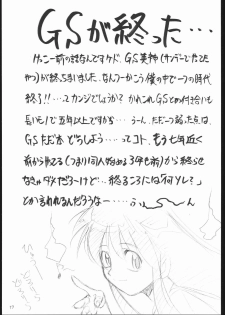 GSが終った…
けっこー前の話なんですケド、GS美神(サンデーでたてた
やつ)が終っちまいました。なんつーかこう僕の中で一つの時代
終了!!…ってカンジでしょうか? かれこれGSとの付き合いも
長いもので五年以上ですから…うーん。ただ一つ弱った点は、
GSただ本どうしよう…ってコト、もう七年近く
前から喋ってる(つまり同人始める3年も前)から終らせ
なきゃダメだろーけど…「終るころには何ソレ?」
とか言われるんだろうなー…。ふぅーん